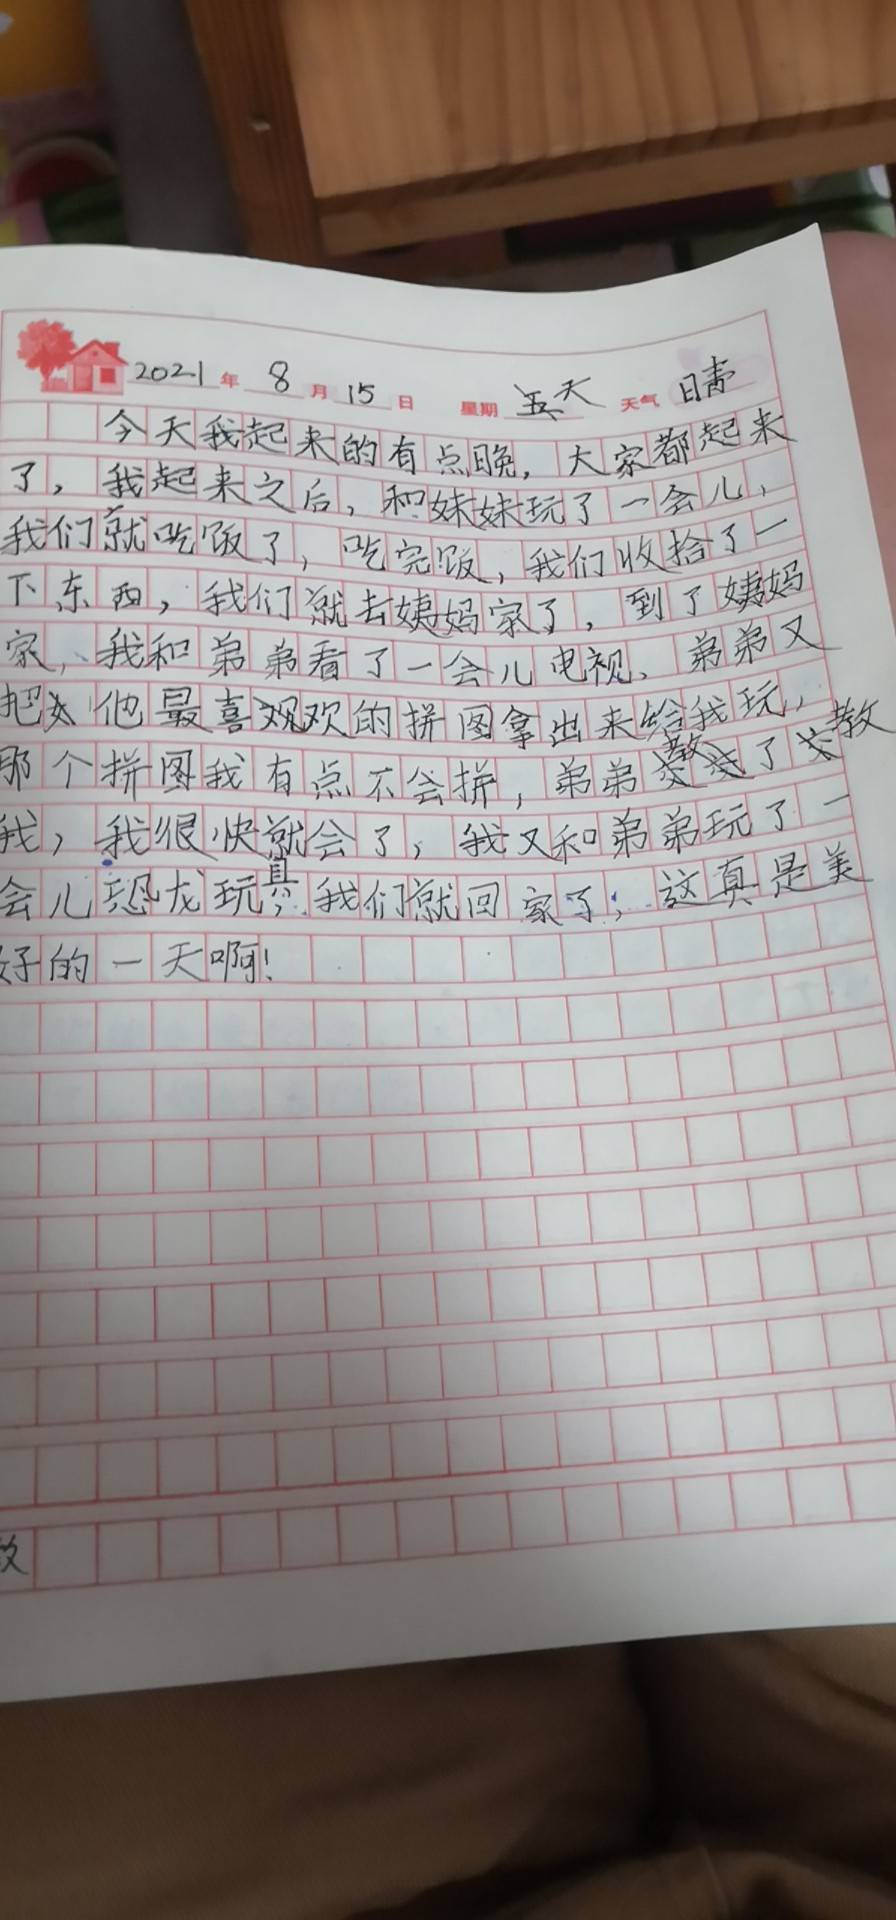 2021年 8月15日 星期天 天气 晴
今天我起来的有点晚，大家都起来
了，我起来之后，和妹妹玩了一会儿，
我们就吃饭了，吃完饭，我们收拾了一
下东西，我们就去姨妈家了，到了姨妈
家，我和弟弟看了一会儿电视、弟弟又
把他最喜欢的拼图拿出来给我玩，
那个拼图我有点不会拼，弟弟教了教
我，我很快就会了，我又和弟弟玩了一
会儿恐龙玩具，我们就回家了，这真是美
好的一天啊！